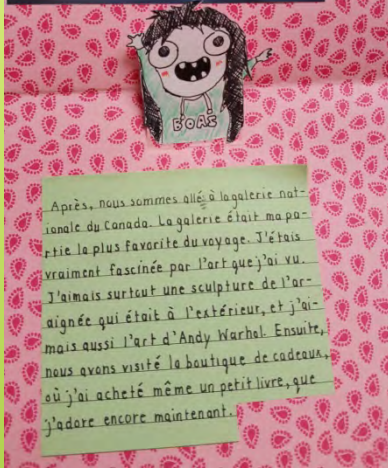 BOAS
Après, nous sommes allé à la galerie nat-
ionale du Canada. La galerie était ma pa-
rtie la plus favorite du voyage. J'étais
vraiment fascinée par l'art que j'ai vu.
J'aimais surtout une sculpture de l'ar-
aignée qui était à l'extérieur, et j'ai-
mais aussi l'art d'Andy Warhol. Ensuite,
nous avons visité la boutique de cadeaux,
où j'ai acheté même un petit livre, que
j'adore encore maintenant.